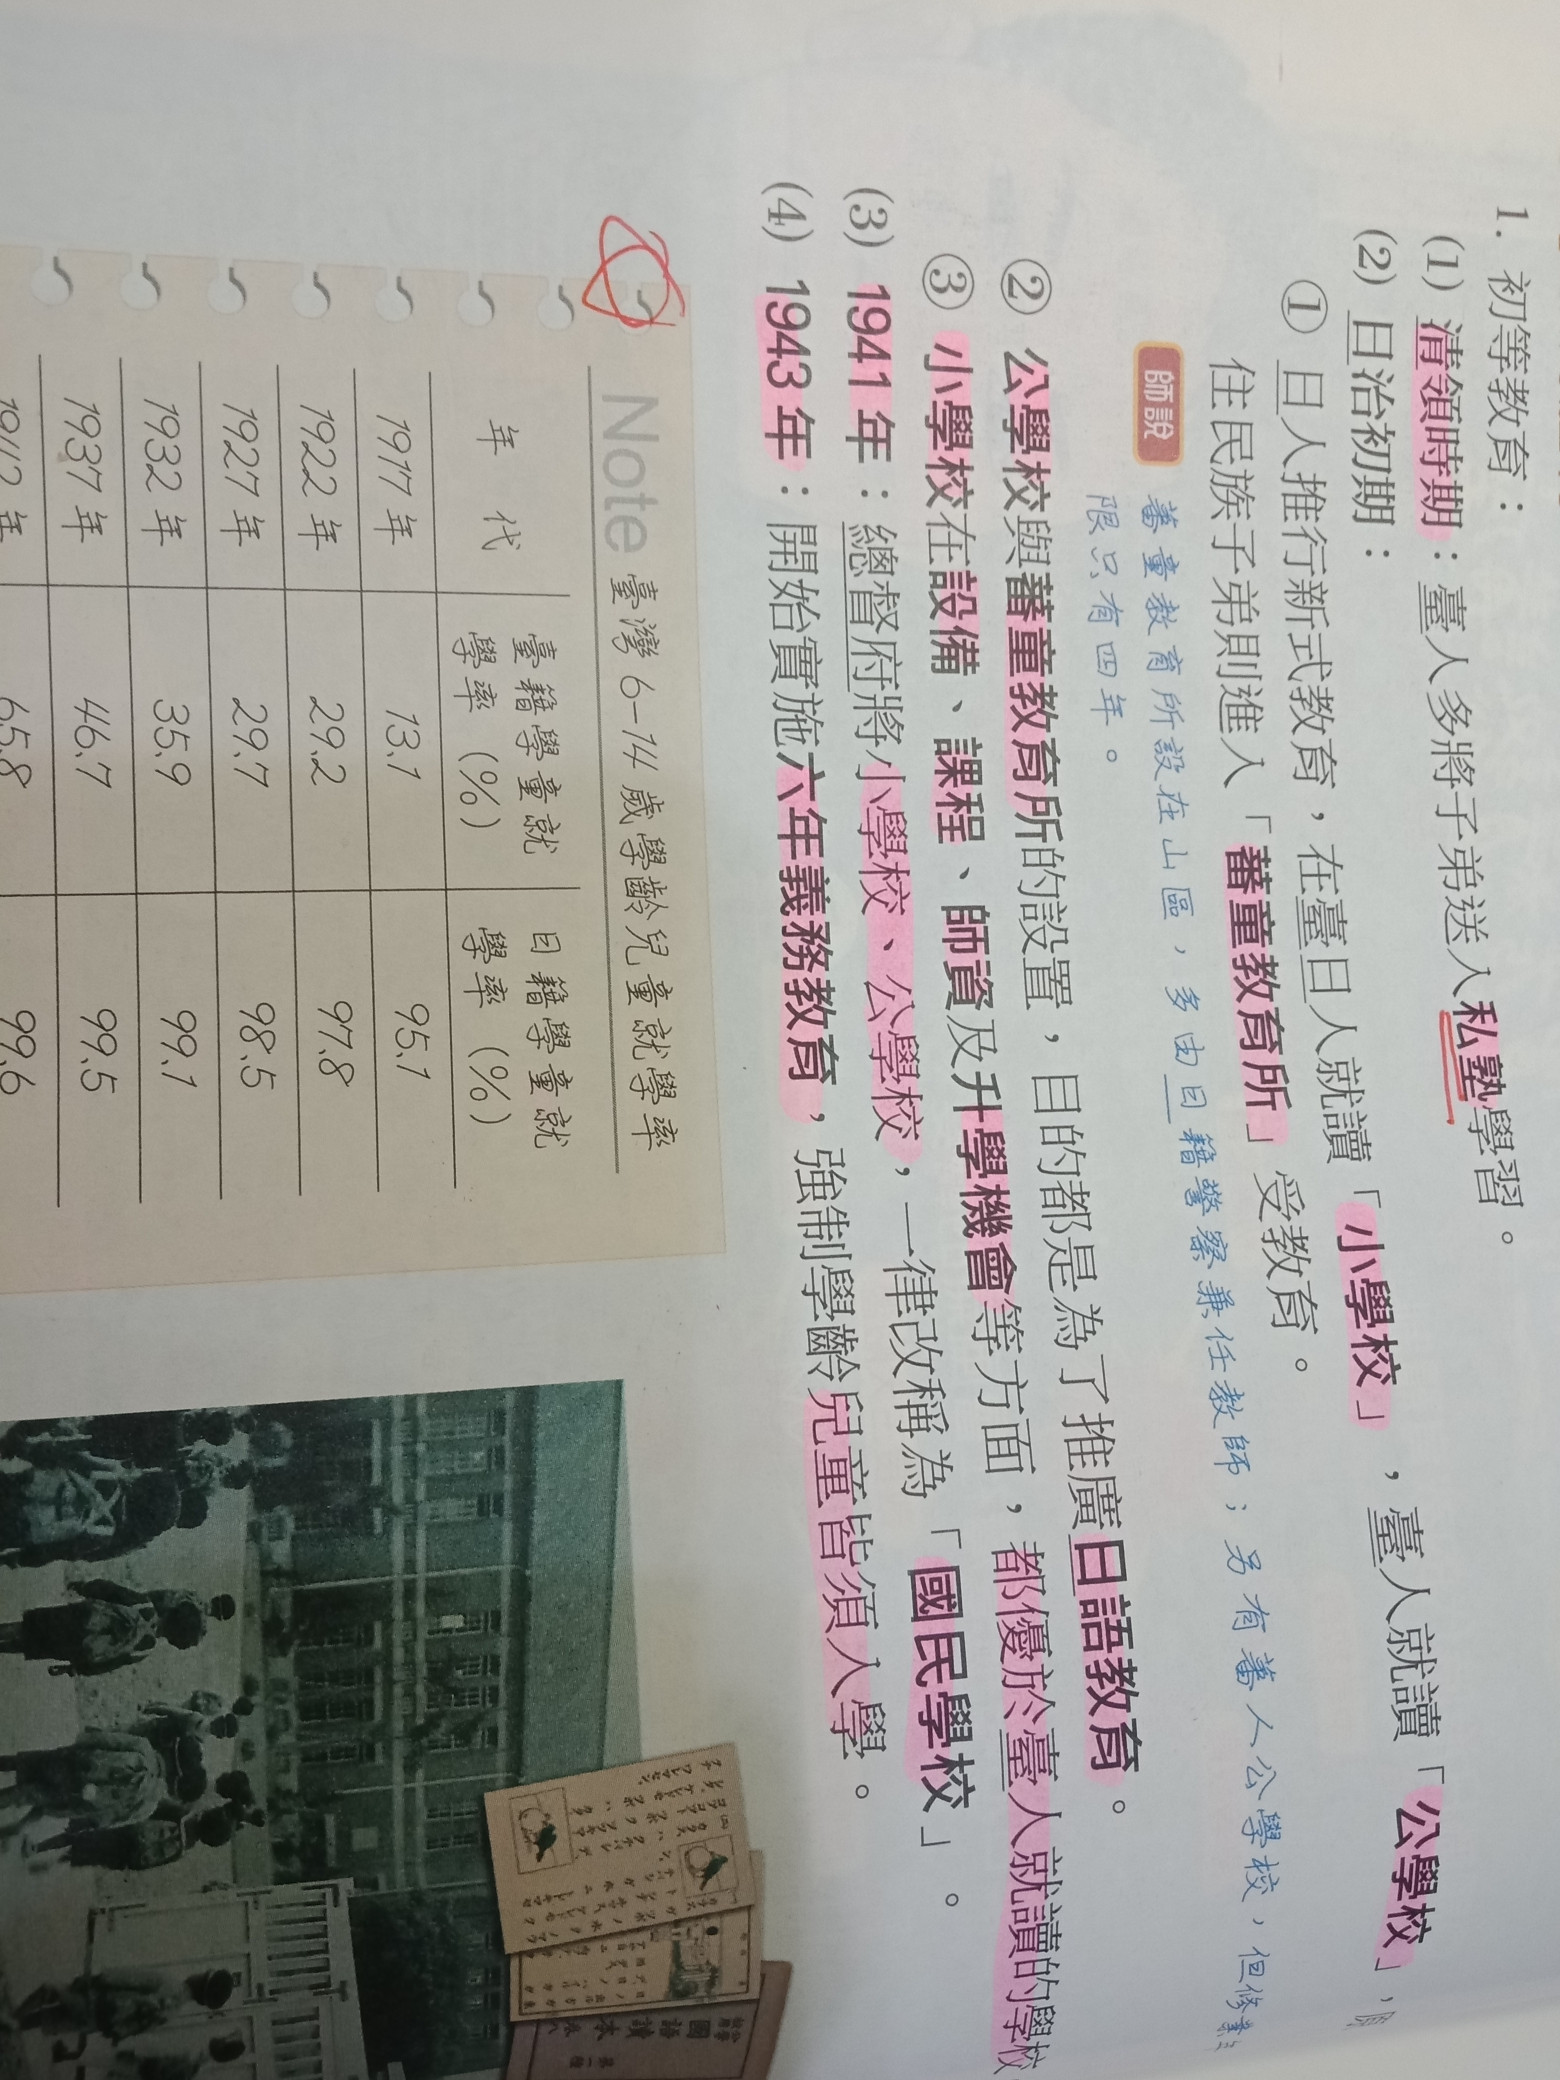 1. 初等教育：
(1) 清領時期：臺人多將子弟送入私塾學習。
(2) 日治初期：
① 日人推行新式教育，在臺日人就讀「小學校」，臺人就讀「公學校」，原
住民族子弟則進入「蕃童教育所」受教育。
師說 蕃童教育所設在山區，多由日籍警察兼任教師；另有蕃人公學校，但修業年
限只有四年。
② 公學校與蕃童教育所的設置，目的都是為了推廣日語教育。
③ 小學校在設備、課程、師資及升學機會等方面，都優於臺人就讀的學校
(3) 1941 年：總督府將小學校、公學校，一律改稱為「國民學校」。
(4) 1943 年：開始實施六年義務教育，強制學齡兒童皆須入學。
Note 臺灣 6-14 歲學齡兒童就學率
年代 臺籍學童就學率（%） 日籍學童就學率（%）
1917 年 13.1 95.1
1922 年 29.2 97.8
1927 年 29.7 98.5
1932 年 35.9 99.1
1937 年 46.7 99.5
年 65.8 99.6
國語讀本